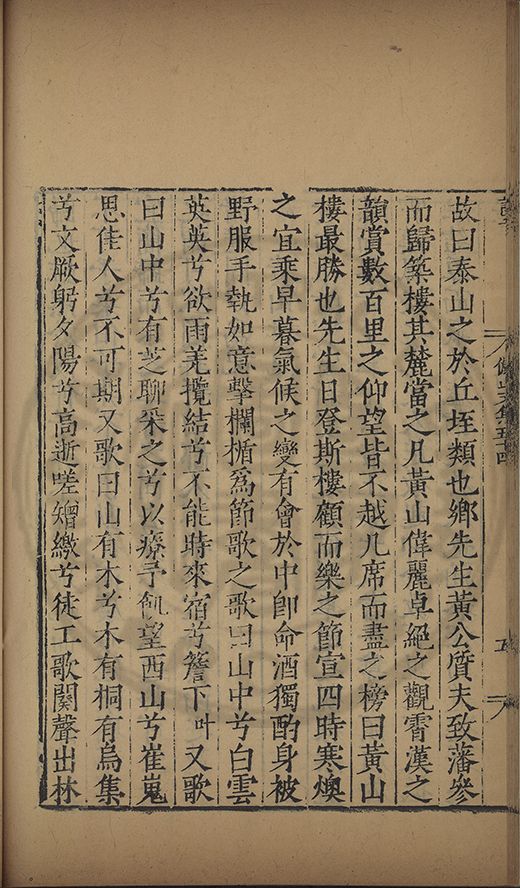 故曰泰山之於丘垤類也鄉先生黃公質夫致藩參
而歸築樓其麓當之凡黃山偉麗卓絕之觀霄漢之
韻賞數百里之仰望皆不越几席而盡之榜曰黃山
樓最勝也先生日登斯樓顧而樂之節宣四時寒燠
之宜乘早暮氣候之變有會於中卽命酒獨酌身被
野服手執如意擊欄楯爲節歌之歌曰山中兮白雲
英英兮欲雨羌攬結兮不能時來宿兮簷下叶又歌
曰山中兮有芝聊采之兮以療予飢望西山兮崔嵬
思佳人兮不可期又歌曰山有木兮木有桐有鳥集
兮文厥躬夕陽兮高逝嗟矰繳兮徒工歌闋聲出林